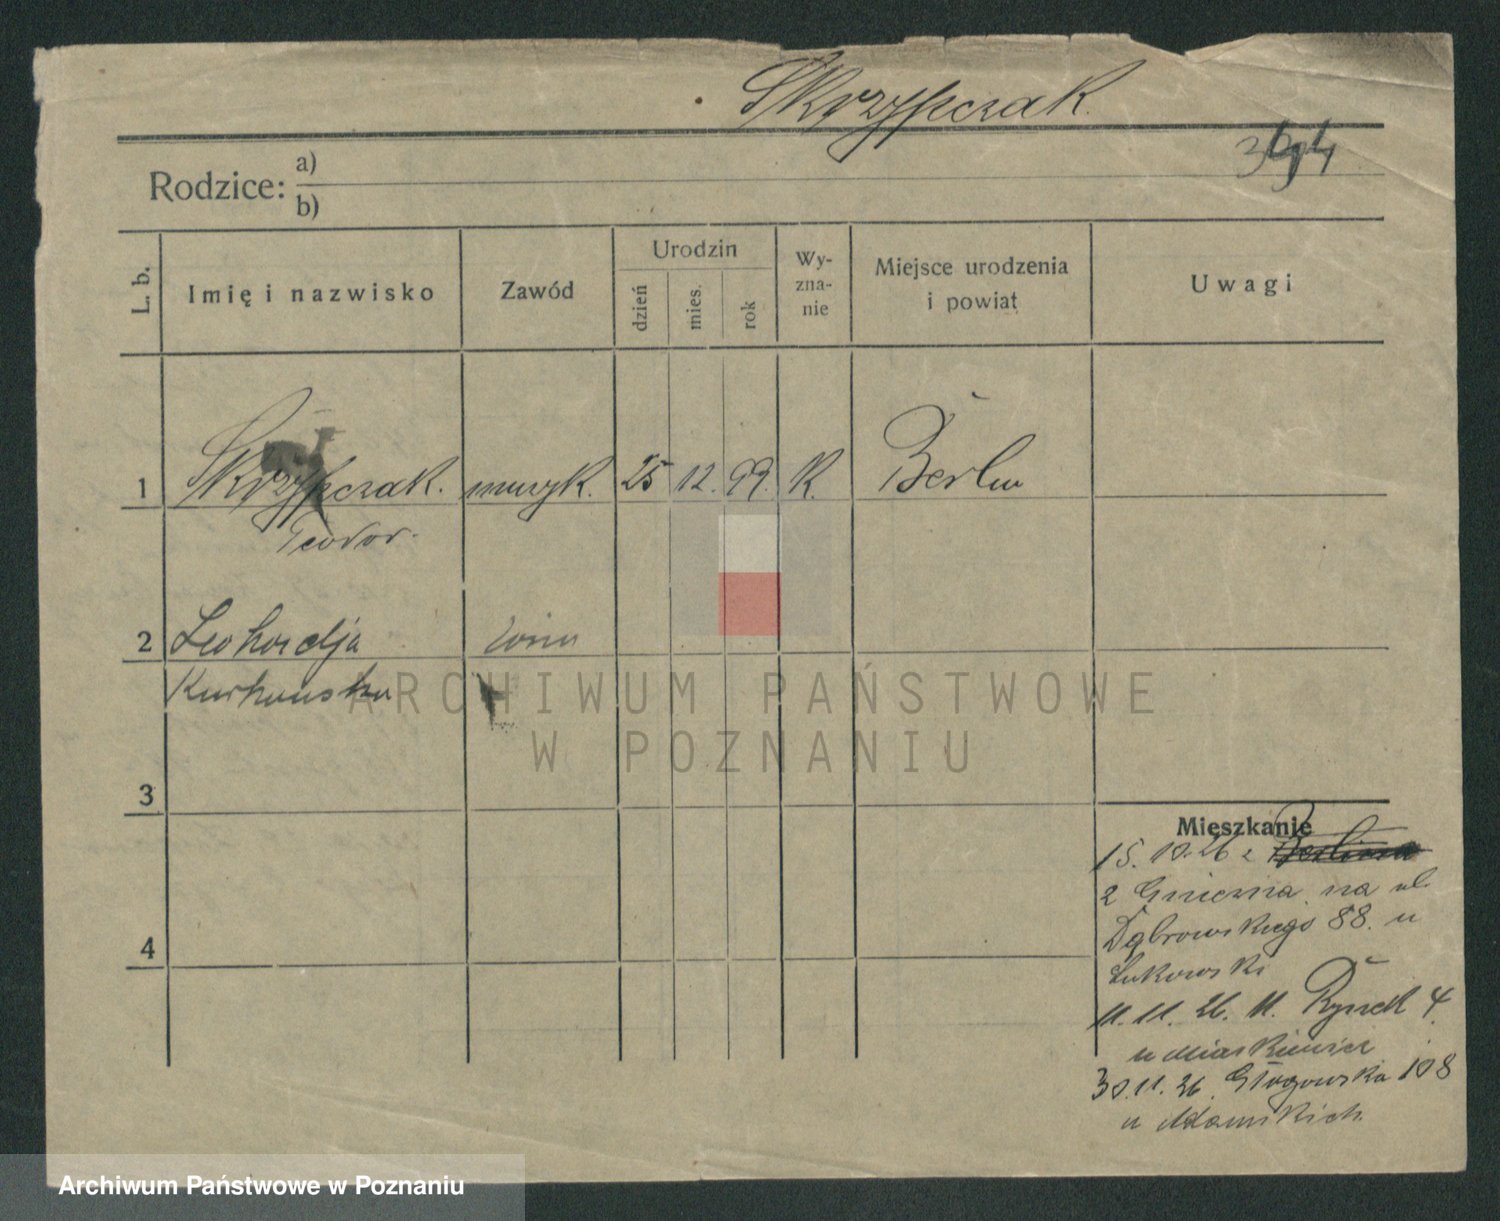 Skrzypczak.
Rodzice: a)
b)
L. b.
Imię i nazwisko
Zawód
Urodzin
dzień
mies.
rok
Wy-
zna-
nie
Miejsce urodzenia
i powiat
Uwagi
1 Skrzypczak. muzyk. 25 12. 99. K. Berlin
Teodor.
2 Leokardja żona
Kurkowska
ARCHIWUM PAŃSTWOWE
W POZNANIU
3
4
Mieszkanie
15. 10. 26 z Berlina
z Gniezna na ul.
Dąbrowskiego 88. u
Łukowski
11. 11. 26. St. Rynek 4.
u Miaskiewicz
30.11.26. Głogowska 108
u Adamskich.
Archiwum Państwowe w Poznaniu